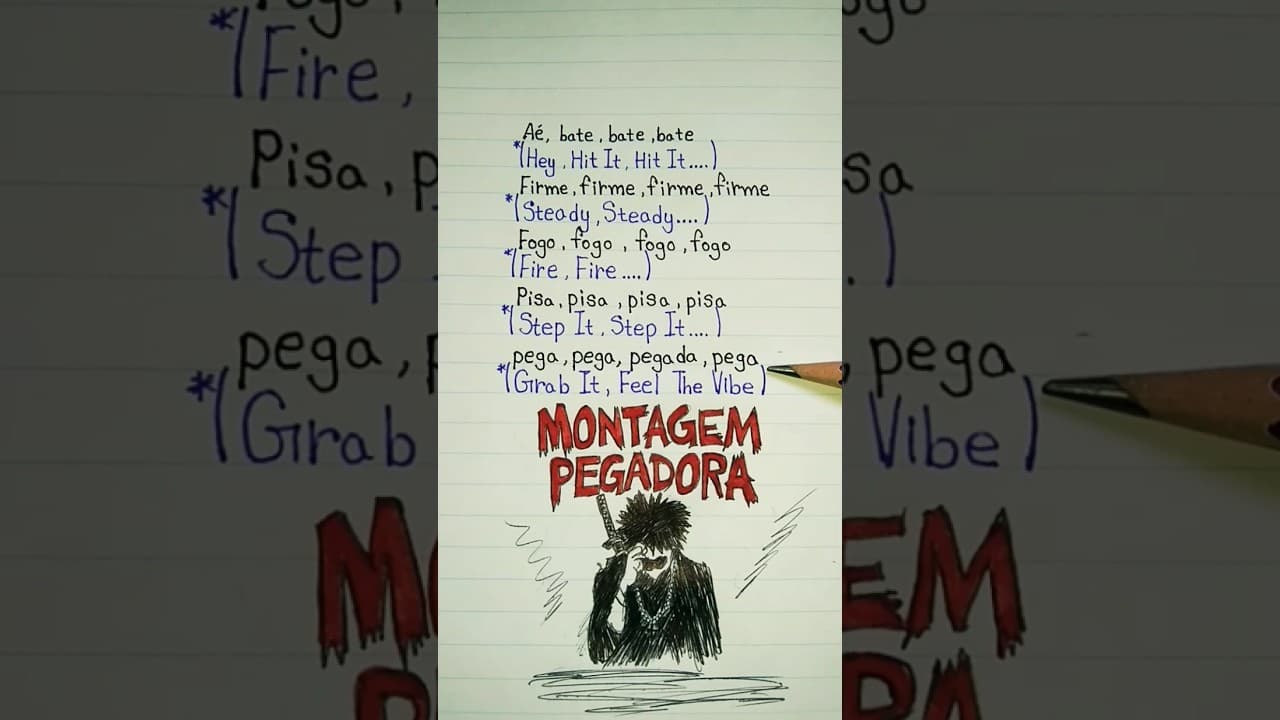 Aé, bate, bate, bate
*(Hey, Hit It, Hit It....)
Firme, firme, firme, firme
*(Steady, Steady....)
Fogo, fogo, fogo, fogo
*(Fire, Fire....)
Pisa, pisa, pisa, pisa
*(Step It, Step It....)
pega, pega, pegada, pega
*(Grab It, Feel The Vibe)
MONTAGEM
PEGADORA